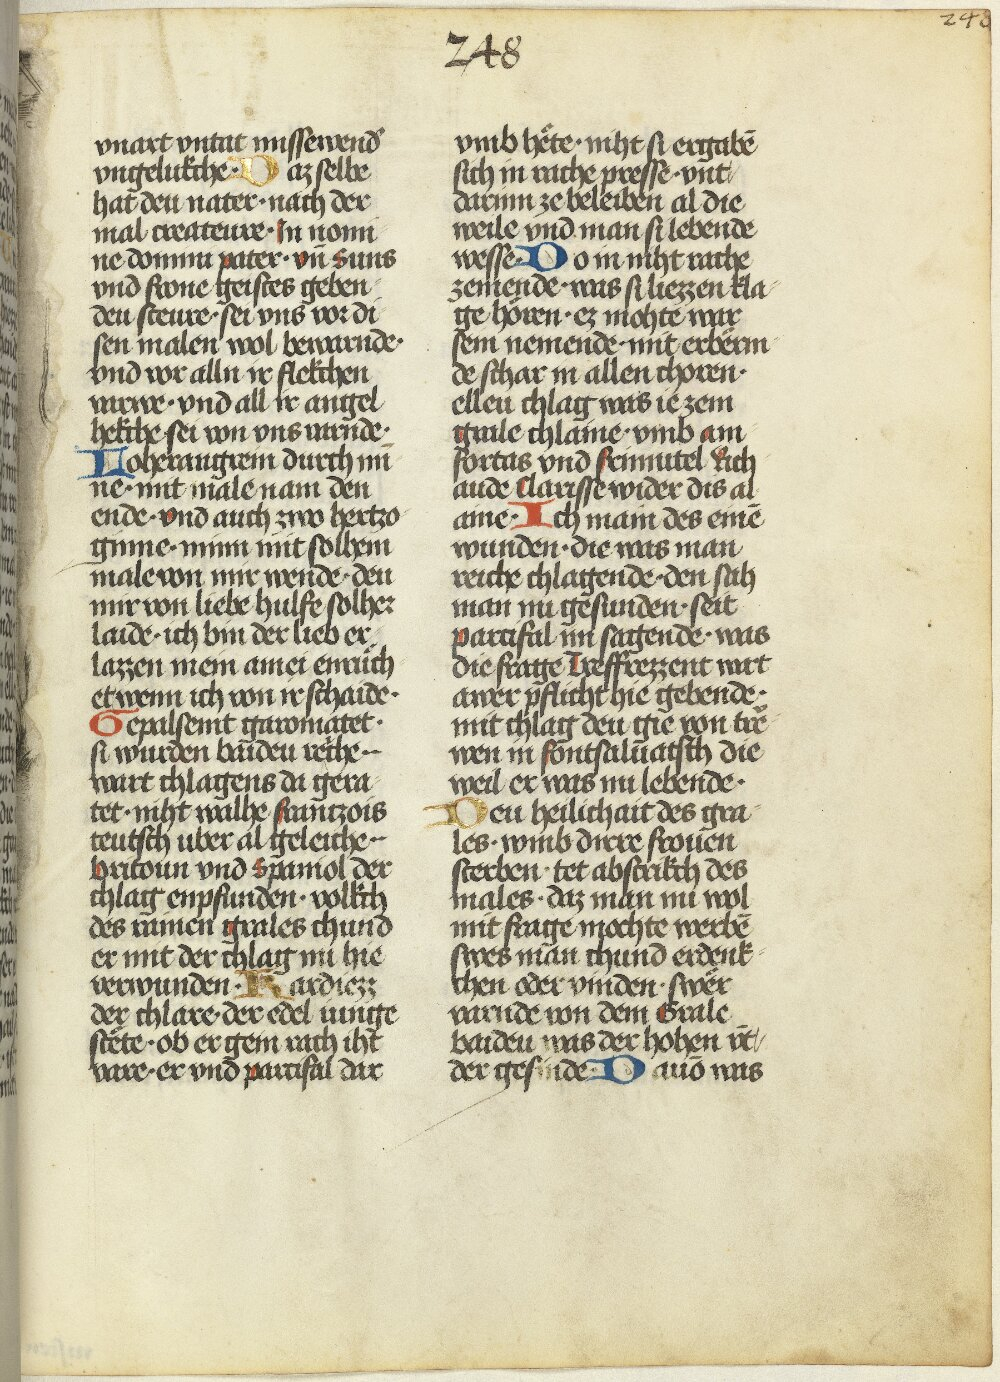 248
248
vnart vntat missewend
vngelukche · Daz selbe
hat deu nater · nach der
mal createure · In nomi
ne domini pater · vn̄ suns
vnd frone geistes geben
deu steure · sei vns vor di
sen malen wol bewarnde ·
vnd vor alln ir flekchen
varwe · vnd all ir angel
hekche sei von vns varnde ·
Loherangrein durch mi
ne · mit male nam den
ende · vnd auch zwo hertzo
ginne · minn mit solhem
male von mir wende · deu
mir von liebe hulfe solher
laide · ich bin der lieb er
lazzen mein amei enruͦch
et wenn ich von ir schaide ·
Gepalsemt garomatet ·
si wurden baideu reche ·
wart chlagens da gera
tet · niht walhe frantzois
teutsch uber al geleiche ·
britoun vnd Spaniol der
chlag enpfunden · volkch
des rainen grales chund
er mit der chlag nu hie
verwunden · Kardiezz
der chlare · der edel iunge
stete · ob er gern rach iht
vare · er vnd partifal dar
vmb hete · niht si ergabē
sich in rache presse · vnt
darinn ze beleiben al die
weile vnd man si lebende
wesse · Do in niht rache
zemende · was si liezzen kla
ge hören · ez mohte war
sem nemende · mit erberm
de schar in allen choren ·
elleu chlag was ie zem
grale chlaine · vmb am
fortas vnd frimutel Rich
aude Clarisse wider dis al
aine · Ich main des einē
wunden · die was man
reiche chlagende · den sah
man nu gesunden · seit
partifal im sagende · was
die frage Treffrezzent wart
awer pflicht hie gebende ·
mit chlag deu gie von trē
wen in fontsaluatsch die
weil er was nu lebende ·
Deu heilichait des gra
les · vmb dirre frouen
sterben · tet abstrikch des
males · daz man nu wol
mit frage mochte werbē
swes man chund erdenk
chen oder vinden · swer
varnde von dem Grale
baideu was der hohen vn̄
der gesinde · Dauō was